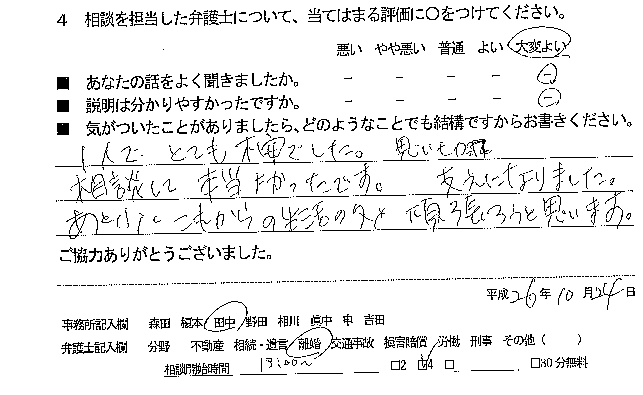 4 相談を担当した弁護士について、当てはまる評価に○をつけてください。
悪い やや悪い 普通 よい 大変よい
■ あなたの話をよく聞きましたか。 － － － － －
■ 説明は分かりやすかったですか。 － － － － －
■ 気がついたことがありましたら、どのようなことでも結構ですからお書きください。
1人で とても不安でした。 思い
相談して 本当よかったです。 支えになりました。
これからの生活の 頑張ろうと思います。
ご協力ありがとうございました。
平成26年10月24日
事務所記入欄 森田 榎本 田中 野田 相川 眞中 申 吉田
弁護士記入欄 分野 不動産 相続・遺言 離婚 交通事故 損害賠償 労働 刑事 その他（ ）
相談開始時間 □2 □4 □ □30分無料